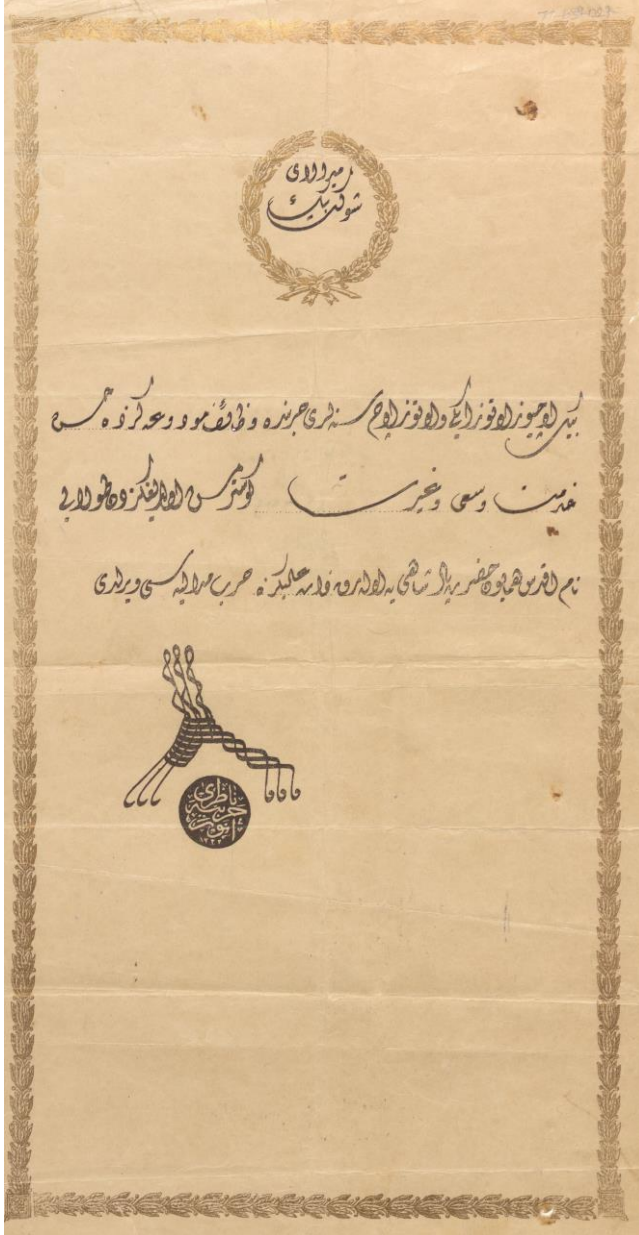 میرالای
شوكت بك
بیك اوچیوز اوتوز ایكی و اوتوز اوچ سنه‌لری حربنده وظائف مودوعه‌كزده حسن
خدمت وسعی وغیرت كوسترمش اولدیغكزدن طولایی
نام اقدس همایون حضرت پادشاهی یه اوله‌رق ذات عالیكزه حرب مدالیه‌سی ویرلدی
ناظری
حربیه
انور